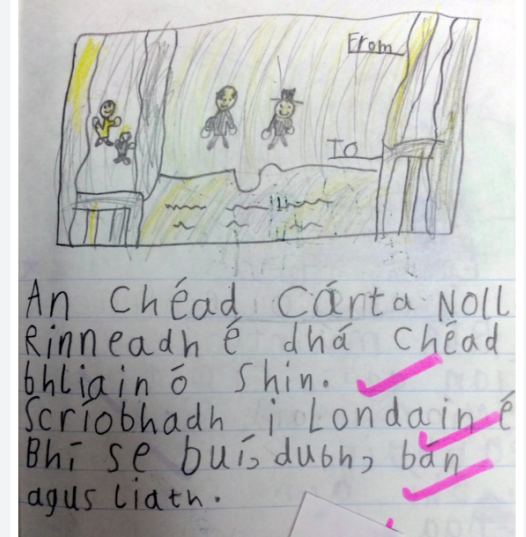 From
To
An Chéad Cárta Noll
Rinneadh é dhá Chéad
bhliain ó Shin.
Scríobhadh i Londain é
Bhí se buí, dubh, bán
agus liath.